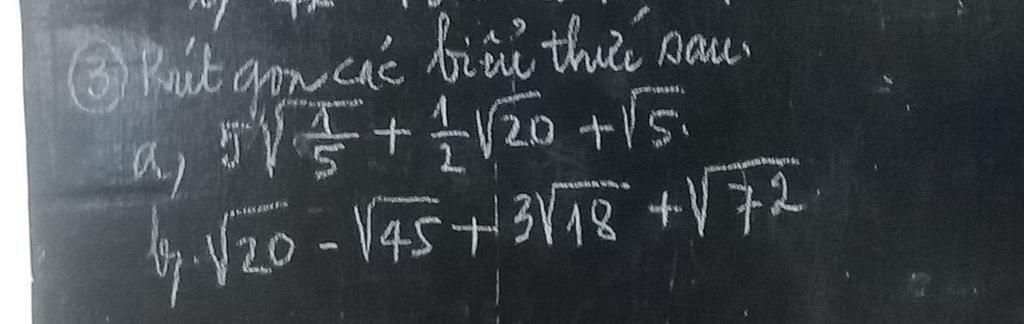 ③ Rút gọn các biểu thức sau.
a, 5√(1/5) + 1/2√20 + √5.
b, √20 - √45 + 3√18 + √72